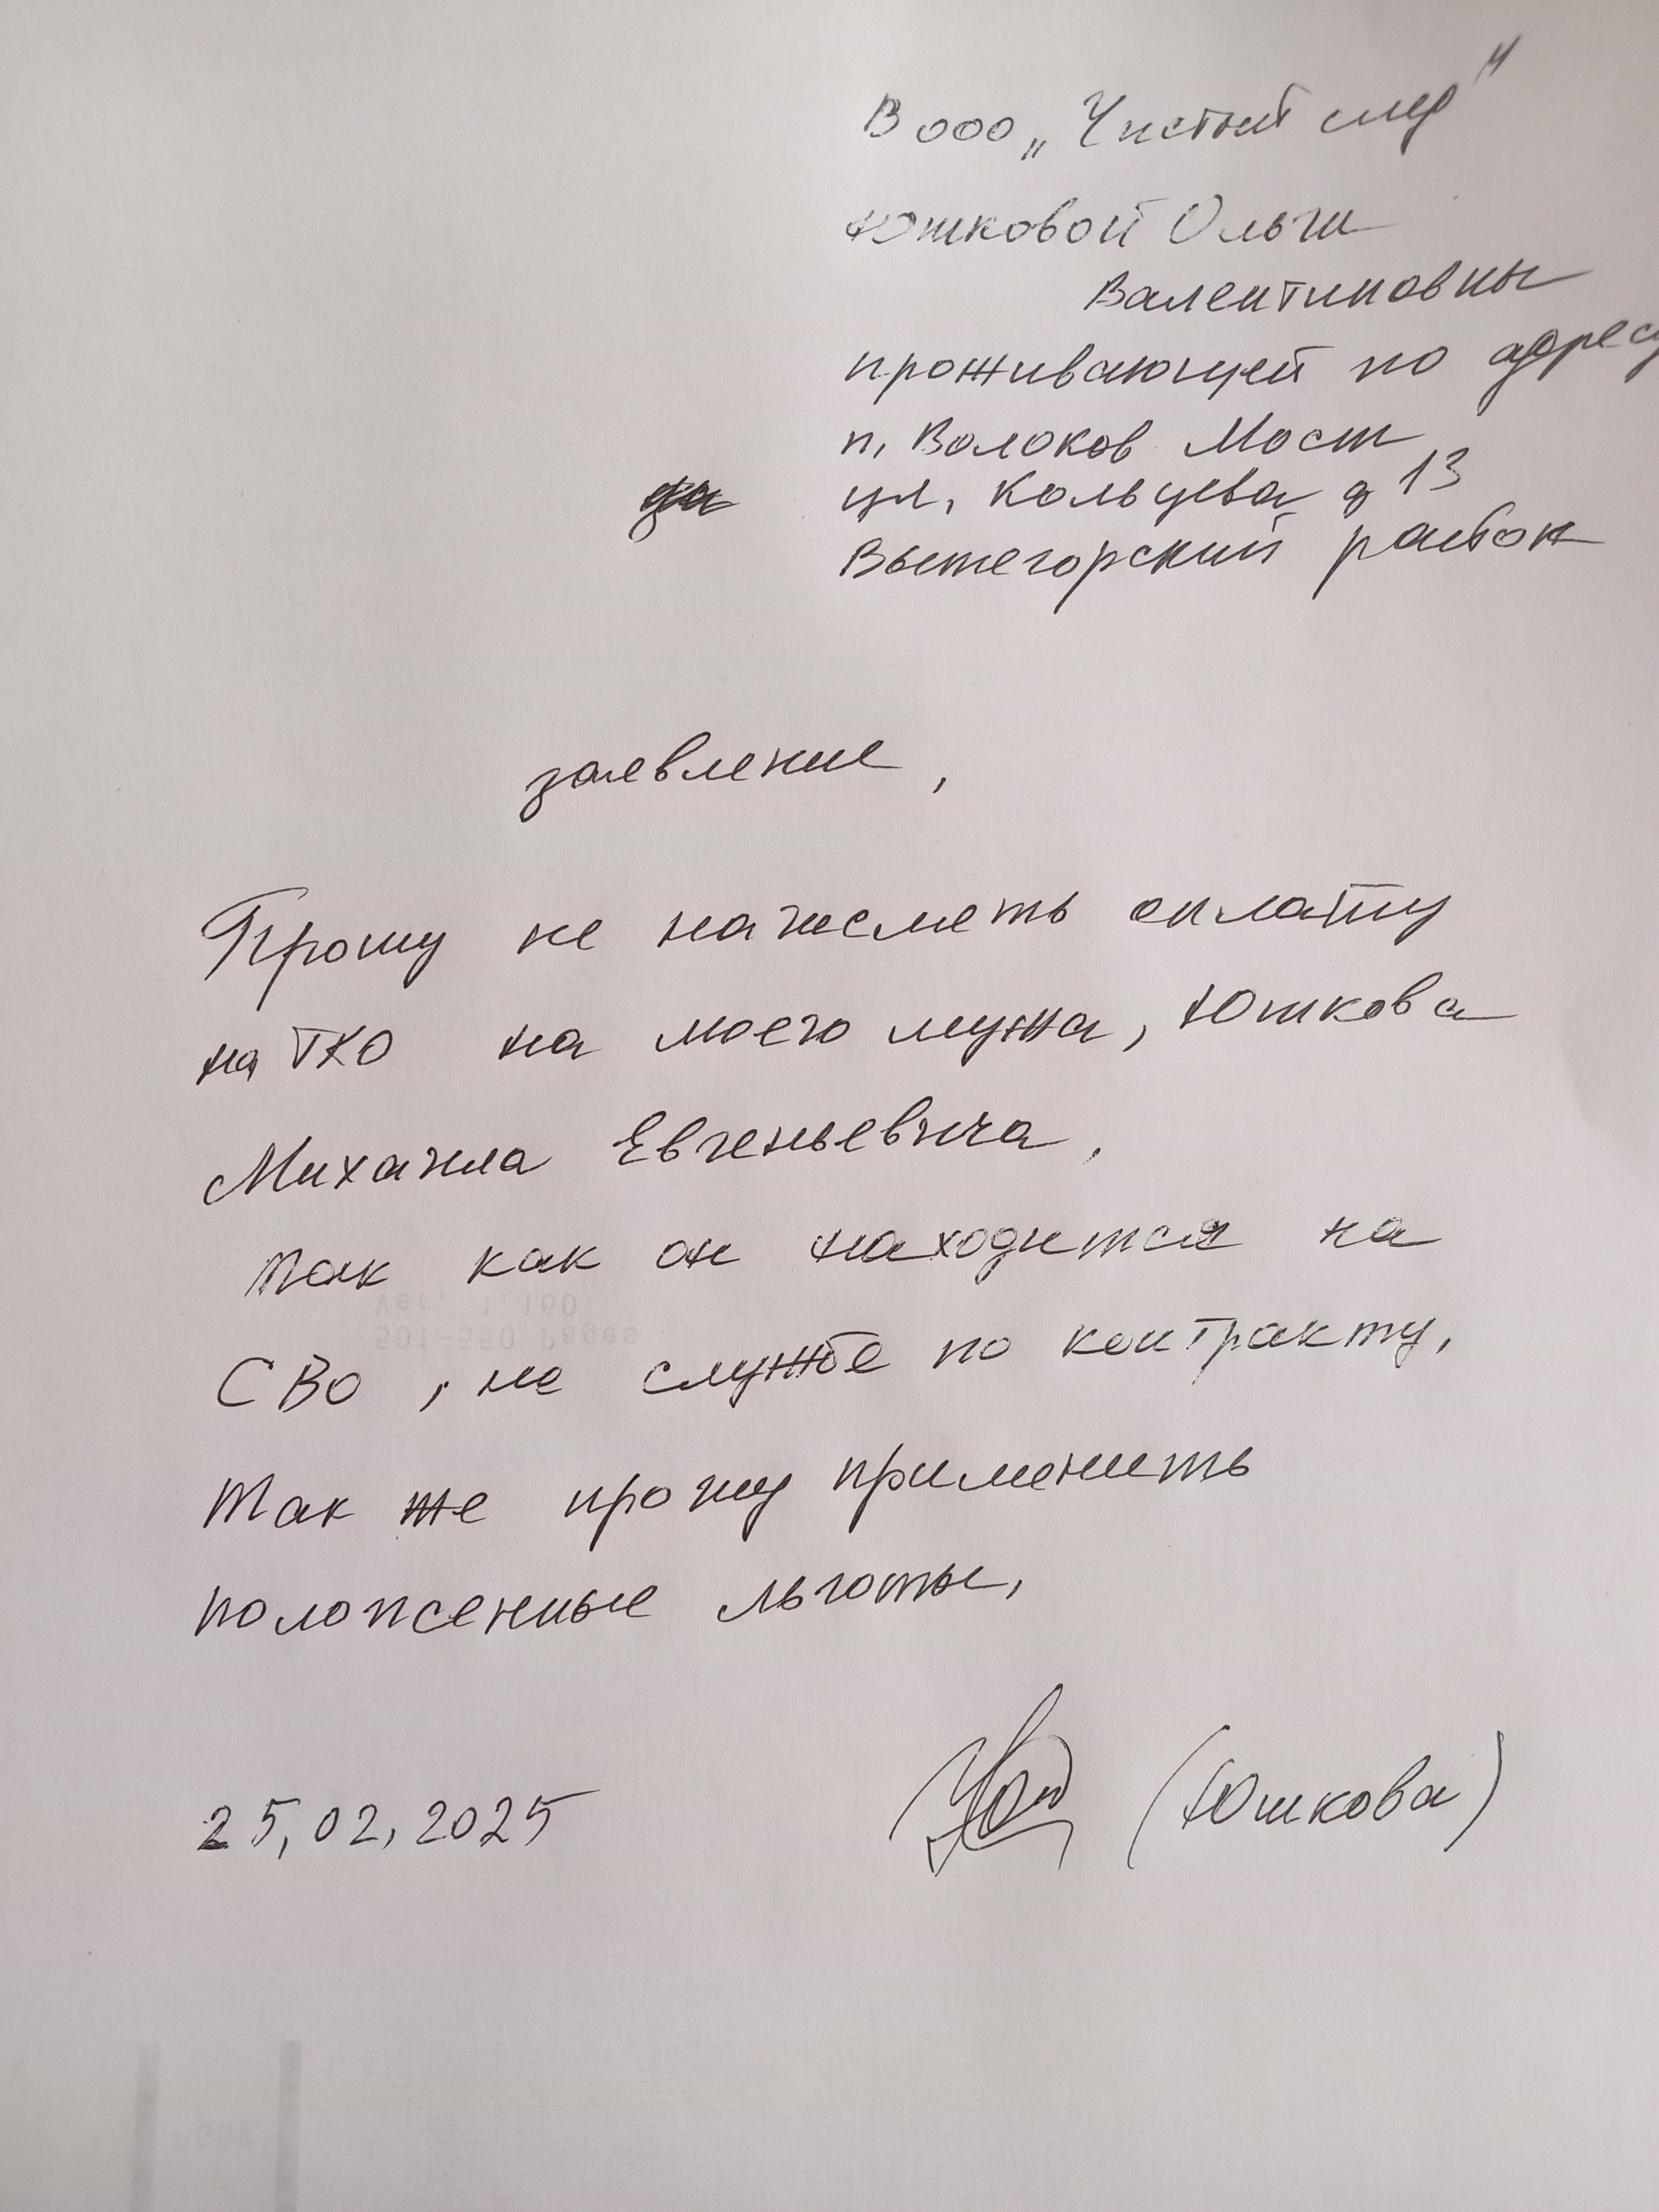 В ООО „Чистый след"
Юшковой Ольги
Валентиновны
проживающей по адресу
п. Волоков Мост
ул. Кольцева д 13
Вытегорский район
заявление,
Прошу не начислять оплату
на ТКО на моего мужа, Юшкова
Михаила Евгеньевича,
так как он находится на
СВО, на службе по контракту,
Так же прошу применить
положенные льготы,
25,02,2025 (Юшкова)
Ver. 1.160
501-550 Pages